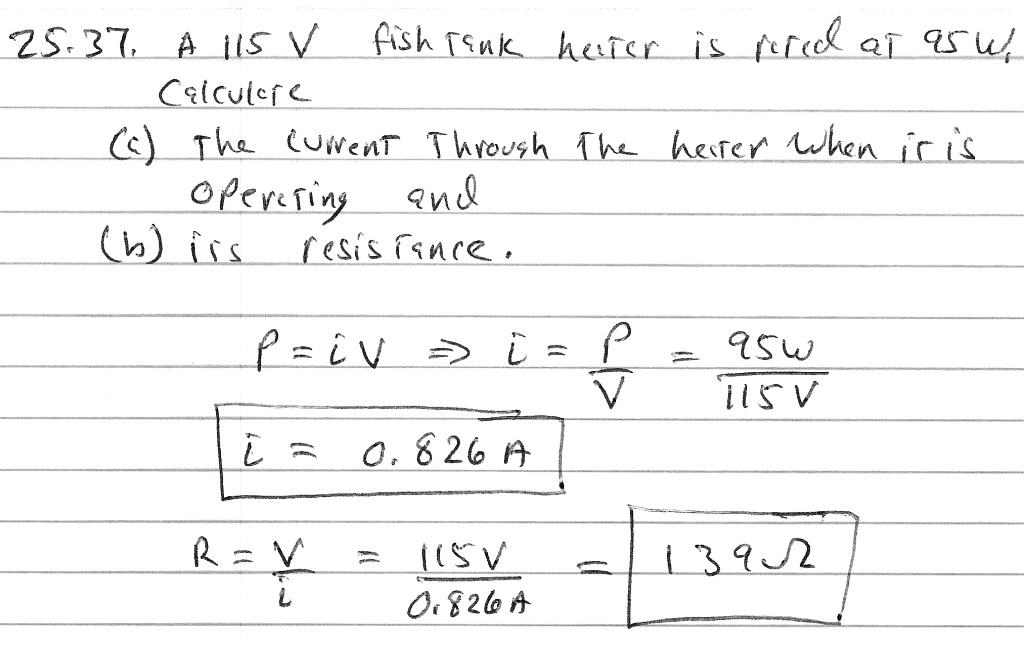 25.37. A 115 V fish tank heater is rated at 95 W.
Calculate
(a) The current Through The heater when it is
operating and
(b) its resistance.
P = iV ⇒ i = P/V = 95W/115V
i = 0.826 A
R = V/i = 115V/0.826A = 139Ω